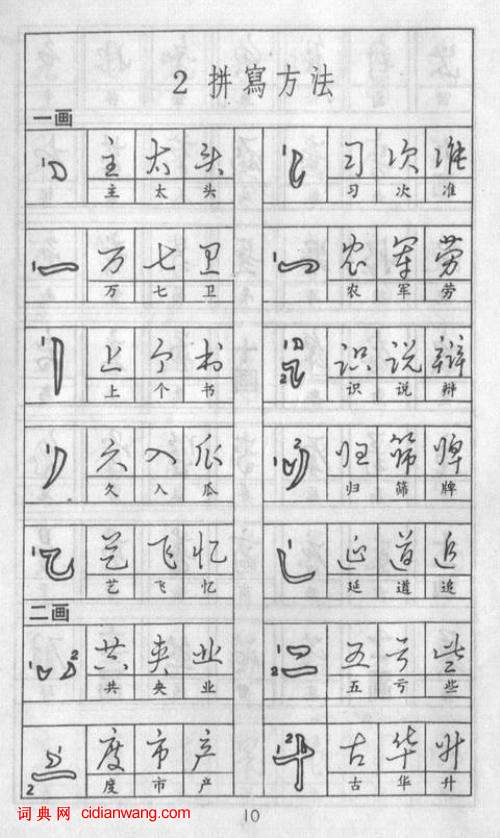 2 拼寫方法
一画
1 主 太 头 1 习 次 准
主 太 头 习 次 准
1 万 七 卫 1 农 军 劳
万 七 卫 农 军 劳
1 上 个 书 1 2 识 说 辩
上 个 书 识 说 辩
1 久 入 瓜 1 2 归 筛 牌
久 入 瓜 归 筛 牌
1 艺 飞 忆 1 延 道 追
艺 飞 忆 延 道 追
二画
1 2 共 夹 业 1 2 五 亏 些
共 夹 业 五 亏 些
1 2 度 市 产 1 2 古 华 升
度 市 产 古 华 升
词典网 cidianwang.com
10